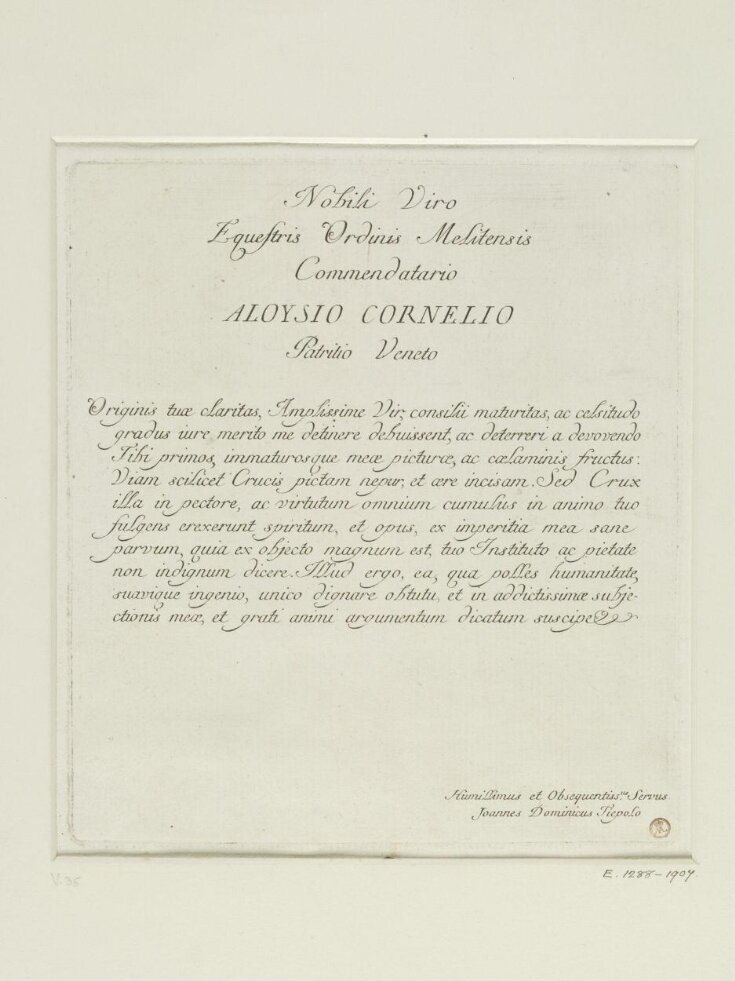 Nobili Viro
Equeſtris Ordinis Melitensis
Commendatario
ALOYSIO CORNELIO
Patritio Veneto
Originis tuæ claritas, Amplissime Vir, consilii maturitas, ac celsitudo
gradus iure merito me detinere debuissent, ac deterreri a devovendo
Tibi primos, immaturosque meæ picturæ, ac cælaminis fructus:
Viam scilicet Crucis pictam nepur, et ære incisam. Sed Crux
illa in pectore, ac virtutum omnium cumulus in animo tuo
fulgens erexerunt spiritum, et opus, ex imperitia mea sane
parvum, quia ex objecto magnum est, tuo Instituto ac pietate
non indignum dicere. Illud ergo, ea, qua polles humanitate,
suavique ingenio, unico dignare obtutu, et in addictissimæ subje-
ctionis meæ, et grati animi argumentum dicatum suscipe
Humillimus et Obsequentiss. Servus
Joannes Dominicus Tiepolo
V. 35
E. 1288-1907